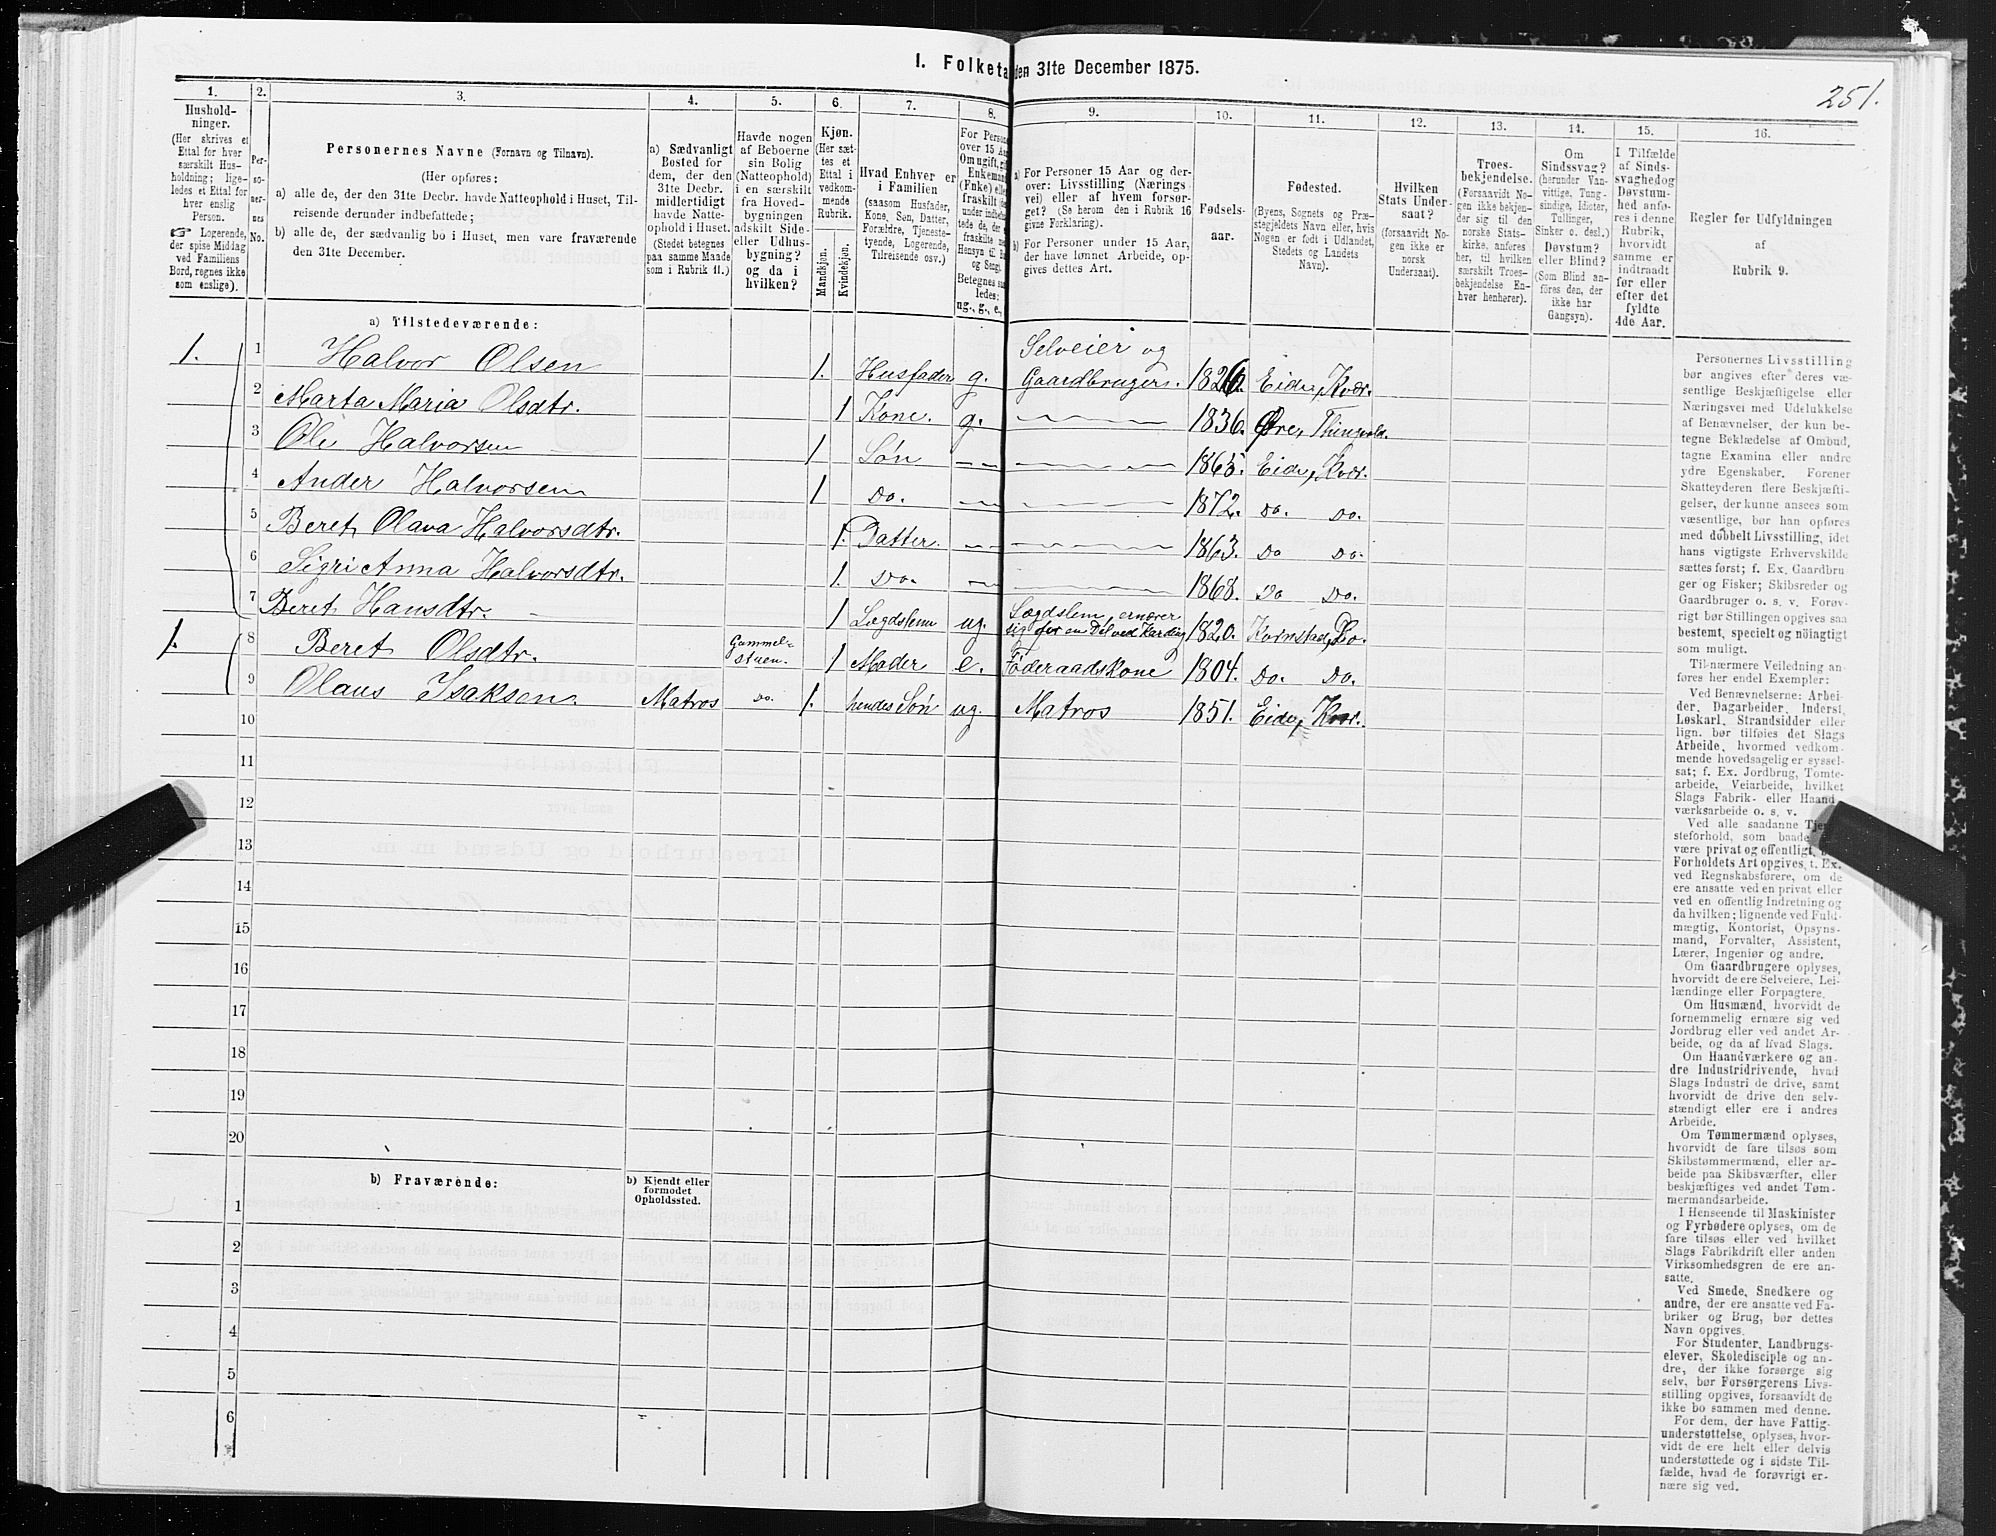 I. Folketa den 31te December 1875.
251.
1. 2. 3. 4. 5. 6. 7. 8. 9. 10. 11. 12. 13. 14. 15. 16.
Hushold-
ninger.
(Her skrives et
Ettal for hver
særskilt Hus-
holdning; lige-
ledes et Ettal for
hver enslig
Person.
☞ Logerende,
der spise Middag
ved Familiens
Bord, regnes ikke
som enslige).
Per-
so-
ner-
nes
No.
Personernes Navne (Fornavn og Tilnavn).
(Her opføres:
a) alle de, der den 31te Decbr. havde Natteophold i Huset, Til-
reisende derunder indbefattede;
b) alle de, der sædvanlig bo i Huset, men vare fraværende
den 31te December.
a) Sædvanligt
Bosted for
dem, der den
31te Decbr.
midlertidigt
havde Natte-
ophold i Huset.
(Stedet betegnes
paa samme Maade
som i Rubrik 11.)
Havde nogen
af Beboerne
sin Bolig
(Natteophold)
i en særskilt
fra Hoved-
bygningen
adskilt Side-
eller Udhus-
bygning?
og da i
hvilken?
Kjøn.
(Her sæt-
tes et
Ettal i
vedkom-
mende
Rubrik.
Mandkjøn.
Kvindekjøn.
Hvad Enhver er
i Familien
(saasom Husfader,
Kone, Søn, Datter,
Forældre, Tjeneste-
tyende, Logerende,
Tilreisende osv.)
For Person
over 15 Aa
Om ugift, gif
Enkemand
(Enke) elle
fraskilt (de
under indbefat-
tede de, der
fraskilte
Hensyn til
og Seng).
Betegnes saa
ledes:
ug., g., e.,
a) For Personer 15 Aar og der-
over: Livsstilling (Nærings
vei) eller af hvem forsør-
get? (Se herom den i Rubrik 16
givne Forklaring).
b) For Personer under 15 Aar,
der have lønnet Arbeide, op-
gives dettes Art.
Fødsels-
aar.
Fødested.
(Byens, Sognets og Præ-
stegjeldets Navn eller, hvis
Nogen er født i Udlandet,
Stedets og Landets
Navn).
Hvilken
Stats Under-
saat?
(forsaavidt No-
gen ikke er
norsk
Undersaat).
Troes-
bekjendelse.
(Forsaavidt No-
gen ikke bekjen-
der sig til den
norske Stats-
kirke, anføres
her, til hvilken
særskilt Troes-
bekjendelse En-
hver henhører).
Om
Sindssvag?
(herunder Van-
vittige, Tung-
sindige, Idioter,
Tullinger,
Sinker o. desl.)
Døvstum?
eller Blind?
(Som Blind an-
føres den, der
ikke har
Gangsyn).
I Tilfælde
af Sinds-
svaghed og
Døvstum-
hed anfø-
res i denne
Rubrik,
hvorvidt
samme er
indtraadt
før eller
efter det
fyldte
4de Aar.
Regler før Udfyldningen
af
Rubrik 9.
a) Tilstedeværende:
1. 1 Halvor Olsen 1. Husfader g. Selveier og Gaardbruger. 1826. Eide, Kvær.
2 Marta Maria Olsdtr. 1 Kone. g. 1836. Øre, Thingvold.
3 Ole Halvorsen 1 Søn 1865. Eide, Kvær.
4 Ander Halvorsen 1 Do. 1872. Do. Do.
5 Beret Olava Halvorsdtr. 1. Datter. 1863. Do Do.
6 Sigri Anna Halvorsdtr. 1. Do. 1868. Do Do.
7 Beret Hansdtr. 1 Lægdslem ug. Lægdslem, ernærer sig for en Del ved Karding 1820. Kornstad, Do.
1. 8 Beret Olsdtr. Gammel-stuen. 1 Moder e. Føderaadskone 1804. Do. Do.
9 Olaus Isaksen. Matros Do. 1. hendes Søn ug. Matros 1851. Eide, Kvær.
10
11
12
13
14
15
16
17
18
19
20
b) Fraværende:
b) Kjendt eller
formodet
Opholdssted.
1
2
3
4
5
6
Personernes Livsstilling
bør angives efter deres væ-
sentlige Beskjæftigelse eller
Næringsvei med Udelukkelse
af Benævnelser, der kun be-
tegne Beklædelse af Ombud,
tagne Examina eller andre
ydre Egenskaber. Forener
Skatteyderen flere Beskjæfti-
gelser, der kunne ansees som
væsentlige, bør han opføres
med dobbelt Livsstilling, idet
hans vigtigste Erhvervskilde
sættes først; f. Ex. Gaardbru-
ger og Fisker; Skibsreder og
Gaardbruger o. s. v. Forøv-
rigt bør Stillingen opgives saa
bestemt, specielt og nöiagtigt
som muligt.
Til nærmere Veiledning an-
føres her endel Exempler:
Ved Benævnelserne: Arbei-
der, Dagarbeider, Inderst,
Løskarl, Strandsidder eller
lign. bør tilføies det Slags
Arbeide, hvormed vedkom-
mende hovedsagelig er syssel-
sat; f. Ex. Jordbrug, Tomte-
arbeide, Veiarbeide, hvilket
Slags Fabrik- eller Haand-
værksarbeide o. s. v.
Ved alle saadanne Tjen
steforhold, som baade
være privat og offentligt,
Forholdets Art opgives, t. Ex.
ved Regnskabsførere, om de
ere ansatte ved en privat eller
ved en offentlig Indretning og
da hvilken; lignende ved Fuld-
mægtig, Kontorist, Opsyns-
mand, Forvalter, Assistent,
Lærer, Ingeniør og andre.
Om Gaardbrugere oplyses,
hvorvidt de ere Selveiere, Lei-
lændinge eller Forpagtere.
Om Husmænd, hvorvidt de
fornemmelig ernære sig ved
Jordbrug eller ved andet Ar-
beide, og da af hvad Slags.
Om Haandværkere og an-
dre Industridrivende, hvad
Slags Industri de drive, samt
hvorvidt de drive den selv-
stændigt eller ere i andres
Arbeide.
Om Tømmermænd oplyses,
hvorvidt de fare tilsøs som
Skibstømmermænd, eller ar-
beide paa Skibsværfter, eller
beskjæftiges ved andet Tøm-
mermandsarbeide.
I Henseende til Maskinister
og Fyrbødere oplyses, om de
fare tilsøs eller ved hvilket
Slags Fabrikdrift eller anden
Virksomhedsgren de ere an-
satte.
Ved Smede, Snedkere og
andre, der ere ansatte ved Fa-
briker og Brug, bør dettes
Navn opgives.
For Studenter, Landbrugs-
elever, Skoledisciple og an-
dre, der ikke forsørge sig
selv, bør Forsørgerens Livs-
stilling opgives, forsaavidt de
ikke bo sammen med denne.
For dem, der have Fattig-
understøttelse, oplyses, hvor-
vidt de ere helt eller delvis
understøttede og i sidste Til-
fælde, hvad de forøvrigt er-
nære sig ved.